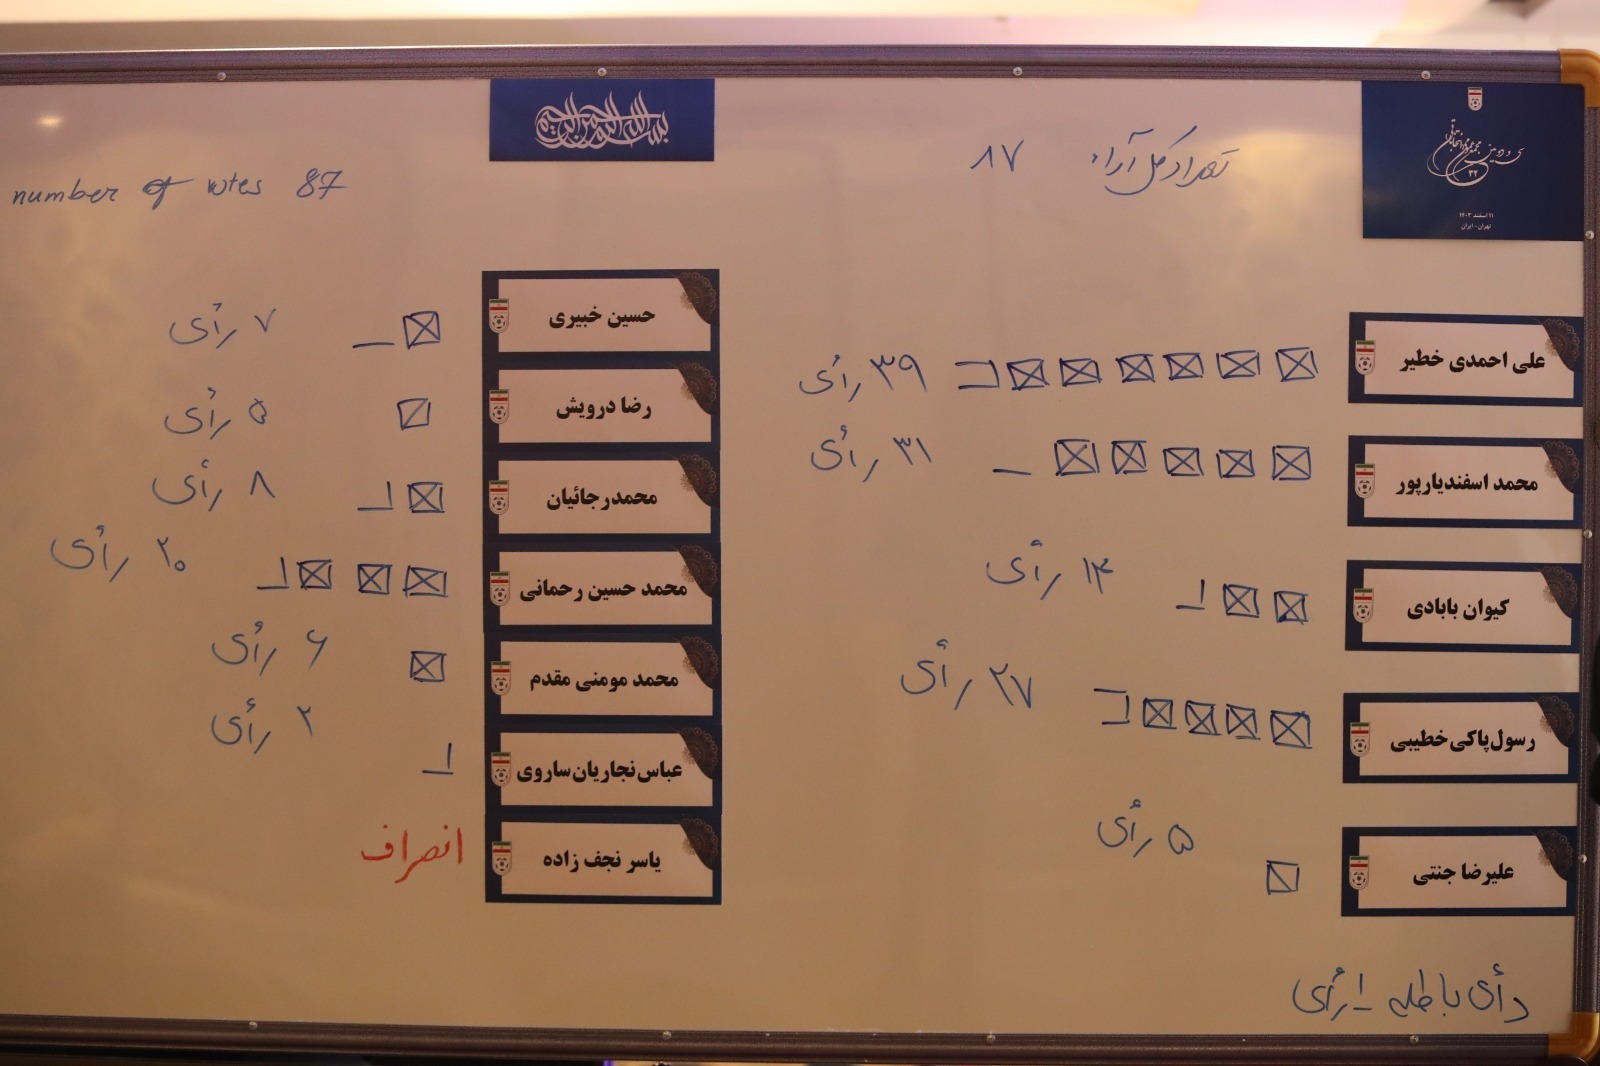 بسم الله الرحمن الرحیم
سی و دومین مجمع عمومی انتخاباتی
۳۲
۱۱ اسفند ۱۴۰۳
تهران - ایران
تعداد کل آراء ۸۷
number of votes 87
علی احمدی خطیر ۳۹ رأی
محمد اسفندیارپور ۳۱ رأی
کیوان بابادی ۱۴ رأی
رسول پاکی خطیبی ۲۷ رأی
علیرضا جنتی ۵ رأی
حسین خبیری ۷ رأی
رضا درویش ۵ رأی
محمدرجائیان ۸ رأی
محمد حسین رحمانی ۲۰ رأی
محمد مومنی مقدم ۶ رأی
عباس نجاریان ساروی ۲ رأی
یاسر نجف زاده انصراف
رأی باطله ۱ رأی